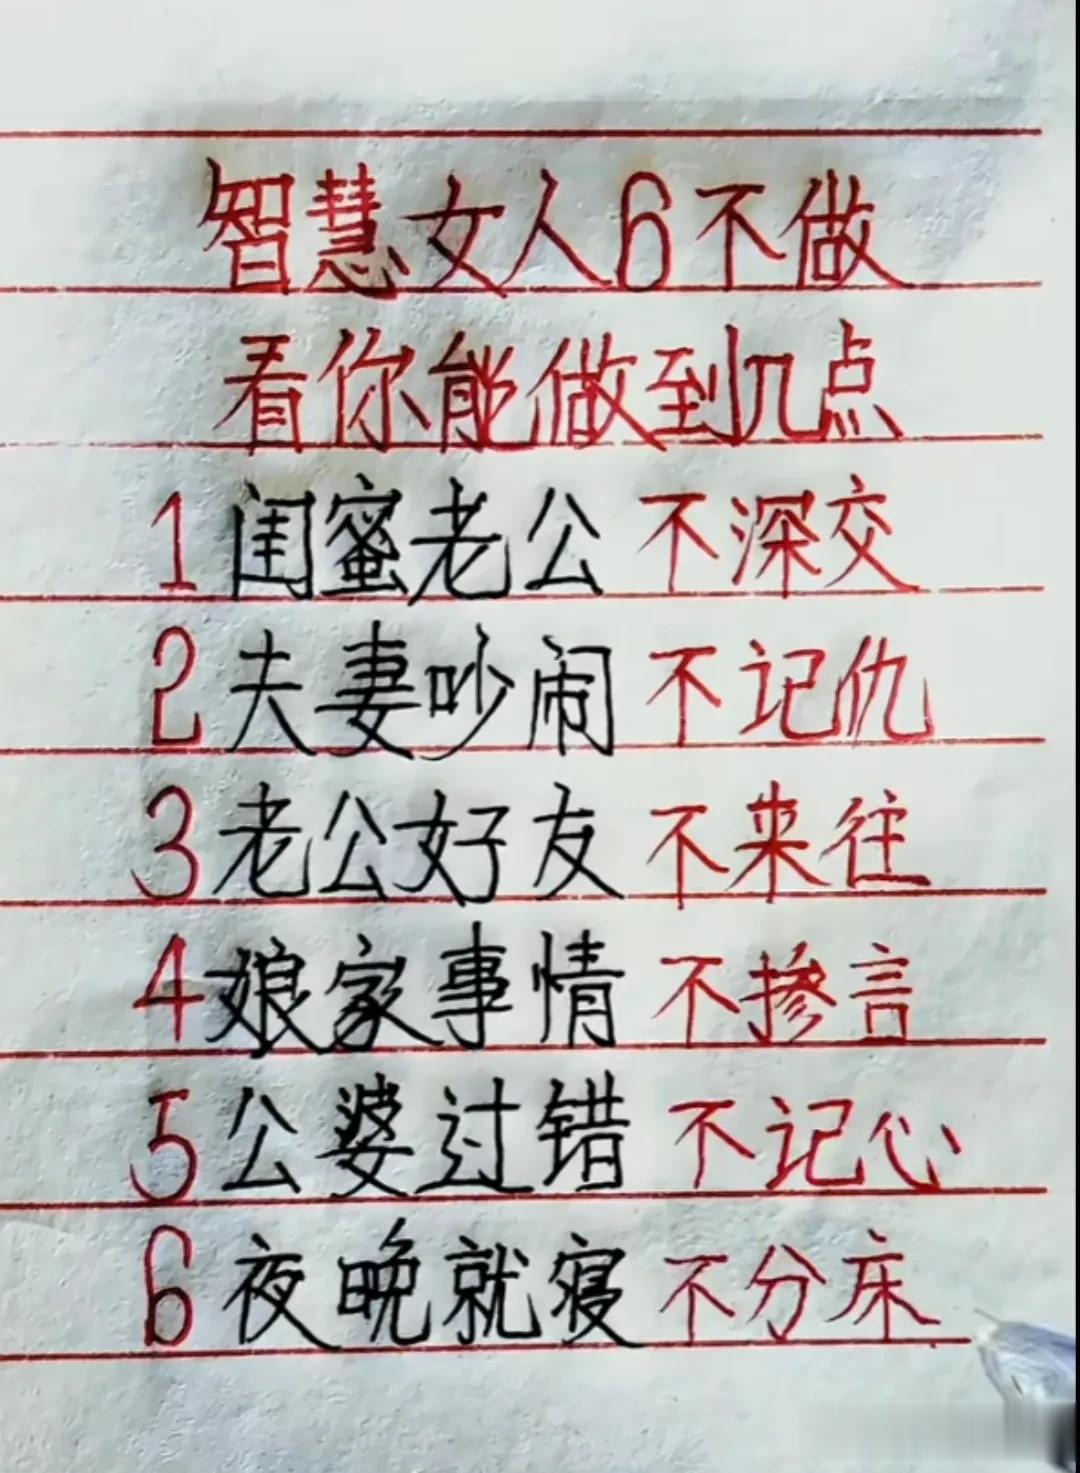 智慧女人6不做
看你能做到几点
1闺蜜老公 不深交
2夫妻吵闹 不记仇
3老公好友 不来往
4娘家事情 不掺言
5公婆过错 不记心
6夜晚就寝 不分床